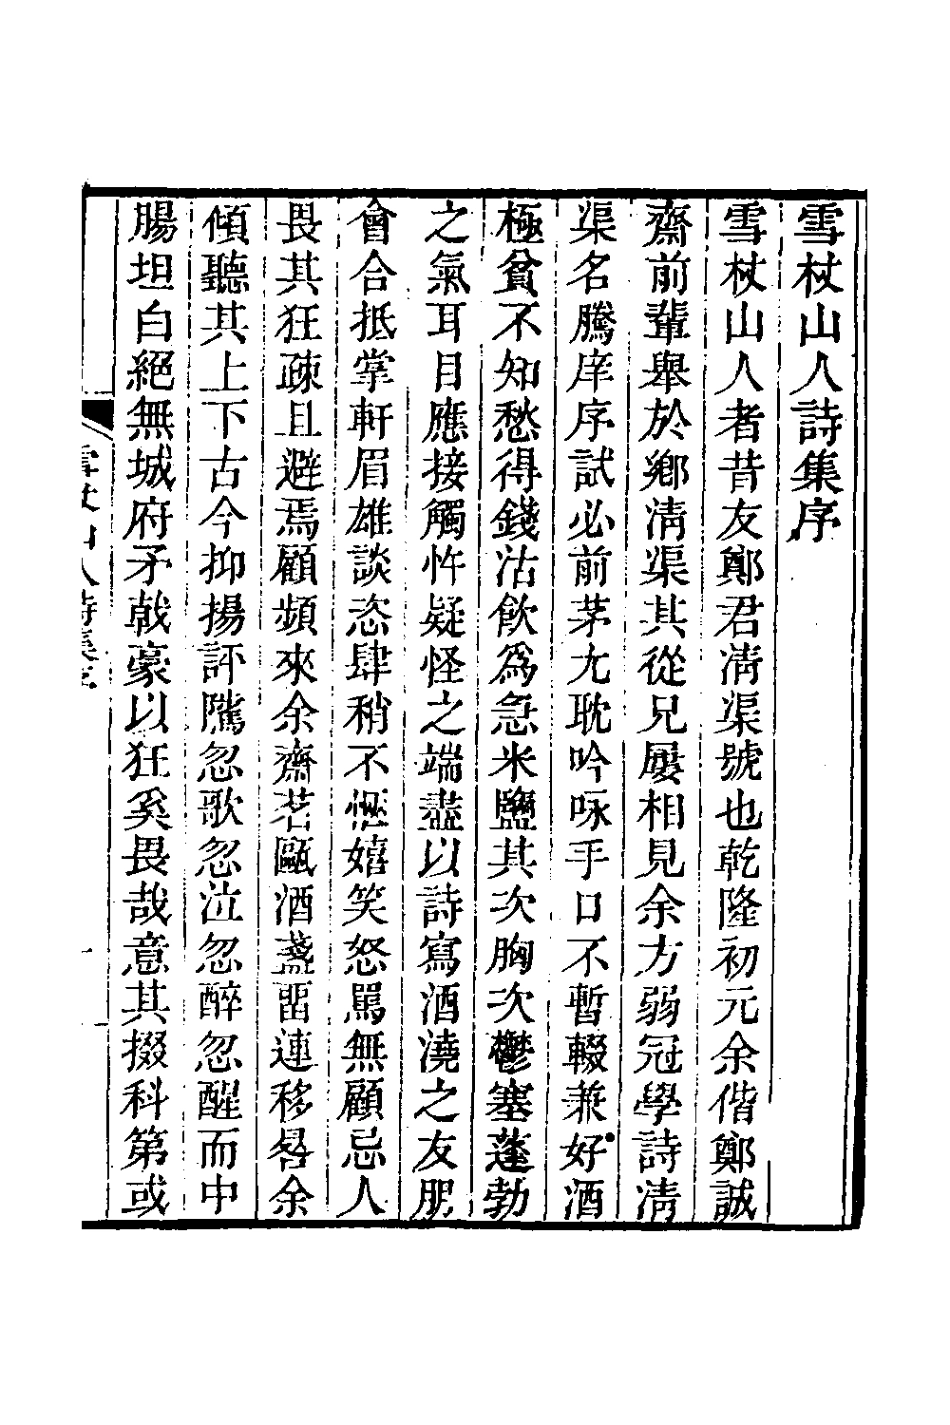 雪杖山人詩集序
雪杖山人者昔友鄭君淸渠號也乾隆初元余偕鄭誠
齋前輩舉於鄉淸渠其從兄屢相見余方弱冠學詩淸
渠名騰庠序試必前茅尤耽吟咏手口不暫輟兼好酒
極貧不知愁得錢沽飮爲急米鹽其次胸次鬱塞蓬勃
之氣耳目應接觸忤疑怪之端盡以詩寫酒澆之友朋
會合抵掌軒眉雄談恣肆稍不愜嬉笑怒罵無顧忌人
畏其狂疎且避焉顧頻來余齋茗甌酒盞畱連移晷余
傾聽其上下古今抑揚評隲忽歌忽泣忽醉忽醒而中
腸坦白絕無城府矛戟豪以狂奚畏哉意其掇科第或
雪杖山人詩集序
一